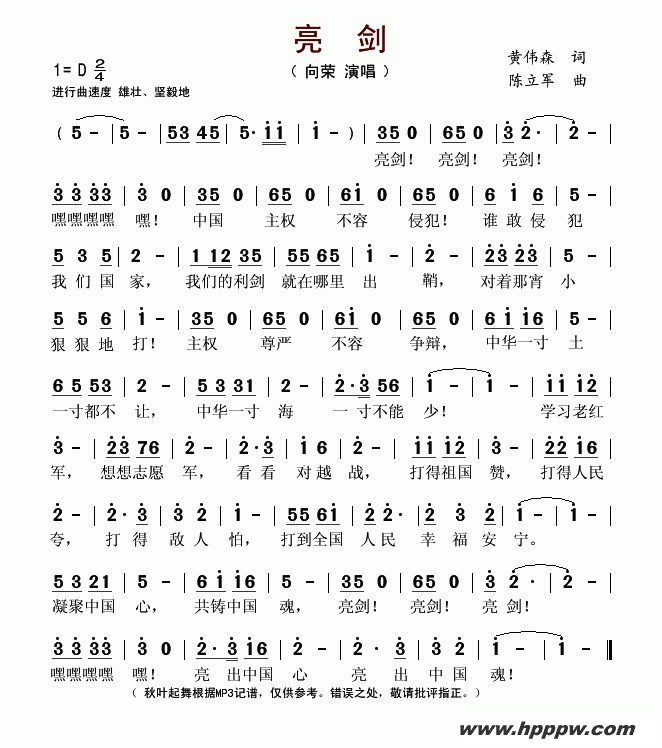 亮 剑
1=D 2/4
（向荣 演唱）
黄伟森 词
陈立军 曲
进行曲速度 雄壮、坚毅地
( 5 - | 5 - | 53 45 | 5· 11 | 1 - ) | 35 0 | 65 0 | 3 2· | 2 - |
亮剑！ 亮剑！ 亮剑！
3 3 33 | 3 0 | 35 0 | 65 0 | 61 0 | 65 0 | 6 1 6 | 5 - |
嘿嘿嘿嘿 嘿！ 中国 主权 不容 侵犯！ 谁敢侵 犯
5 3 5 | 2 - | 1 12 35 | 55 65 | 1 - | 2 - | 23 23 | 5 - |
我们国 家， 我们的利剑 就在哪里 出 鞘， 对着那宵 小
5 5 6 | 1 - | 35 0 | 65 0 | 35 0 | 65 0 | 6 1 16 | 5 - |
狠狠地 打！ 主权 尊严 不容 争辩， 中华一寸 土
6 5 53 | 2 - | 5 3 31 | 2 - | 2·3 56 | 1 - | 1 - | 11 12 |
一寸都不 让， 中华一寸 海 一寸不能 少！ 学习老红
3 - | 23 76 | 2 - | 2·3 | 2 - | 11 12 | 3 - | 22 16 |
军， 想想志愿 军， 看看对越 战， 打得祖国 赞， 打得人民
2 - | 2· 3 | 3 2 | 1 - | 55 61 | 2 2 | 2· 3 | 1 - | 1 - |
夸， 打得 敌人 怕， 打到全国 人民 幸福安 宁。
5 3 21 | 5 - | 6 1 16 | 3 - | 35 0 | 65 0 | 3 2· | 2 - |
凝聚中国 心， 共铸中国 魂， 亮剑！ 亮剑！ 亮 剑！
3 3 33 | 3 0 | 2·3 16 | 2 - | 2·3 | 3 2 | 1 - | 1 - ‖
嘿嘿嘿嘿 嘿！ 亮出中国 心 亮出 中国 魂！
（ 秋叶起舞根据MP3记谱，仅供参考。错误之处，敬请批评指正。）
www.hpppw.com